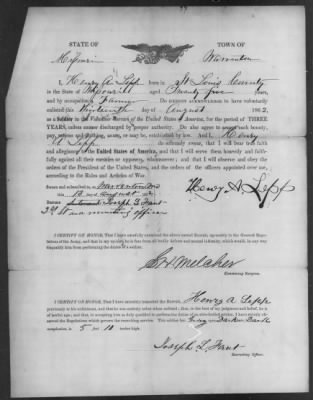 STATE OF
TOWN OF
Missouri
Warrenton
I, Henry A. Lepp born in St Louis County
in the State of Missouri aged Twenty five years,
and by occupation a Farmer DO HEREBY ACKNOWLEDGE to have voluntarily
enlisted this day of August 1862,
as a Soldier in the Volunteer Army of the United States of America, for the period of THREE
YEARS, unless sooner discharged by proper authority. Do also agree to accept such bounty,
pay, rations and clothing, as are, or may be, established by law. And I, Henry
A. Lepp do solemnly swear, that I will bear true faith and
allegiance to the United States of America, and that I will serve them honestly and faithfully
against all their enemies or opposers, whomsoever; and that I will observe and obey the
orders of the President of the United States, and the orders of the officers appointed over me,
according to the Rules and Articles of War.
Sworn and subscribed to, at Warrenton Mo
this 13 day of August 1862
BEFORE Joseph L. Fant
Lt and recruiting officer
Henry A Lepp
I CERTIFY ON HONOR, That I have carefully examined the above named Recruit, agreeably to the General Regulations
of the Army, and that in my opinion he is free from all bodily defects and mental infirmity, which would, in any way,
disqualify him from performing the duties of a soldier.
Melcher
Examining Surgeon.
I CERTIFY ON HONOR, That I have minutely inspected the Recruit, Henry A. Lepp
previously to his enlistment, and that he was entirely sober when enlisted; that, to the best of my judgment and belief, he is
of lawful age; and that, in accepting him as duly qualified to perform the duties of an able-bodied soldier, I have strictly observed
the Regulations which govern the recruiting service. This soldier has eyes, Dark hair, Dark
complexion, is 5 feet 10 inches high.
Joseph L. Fant
Recruiting Officer.